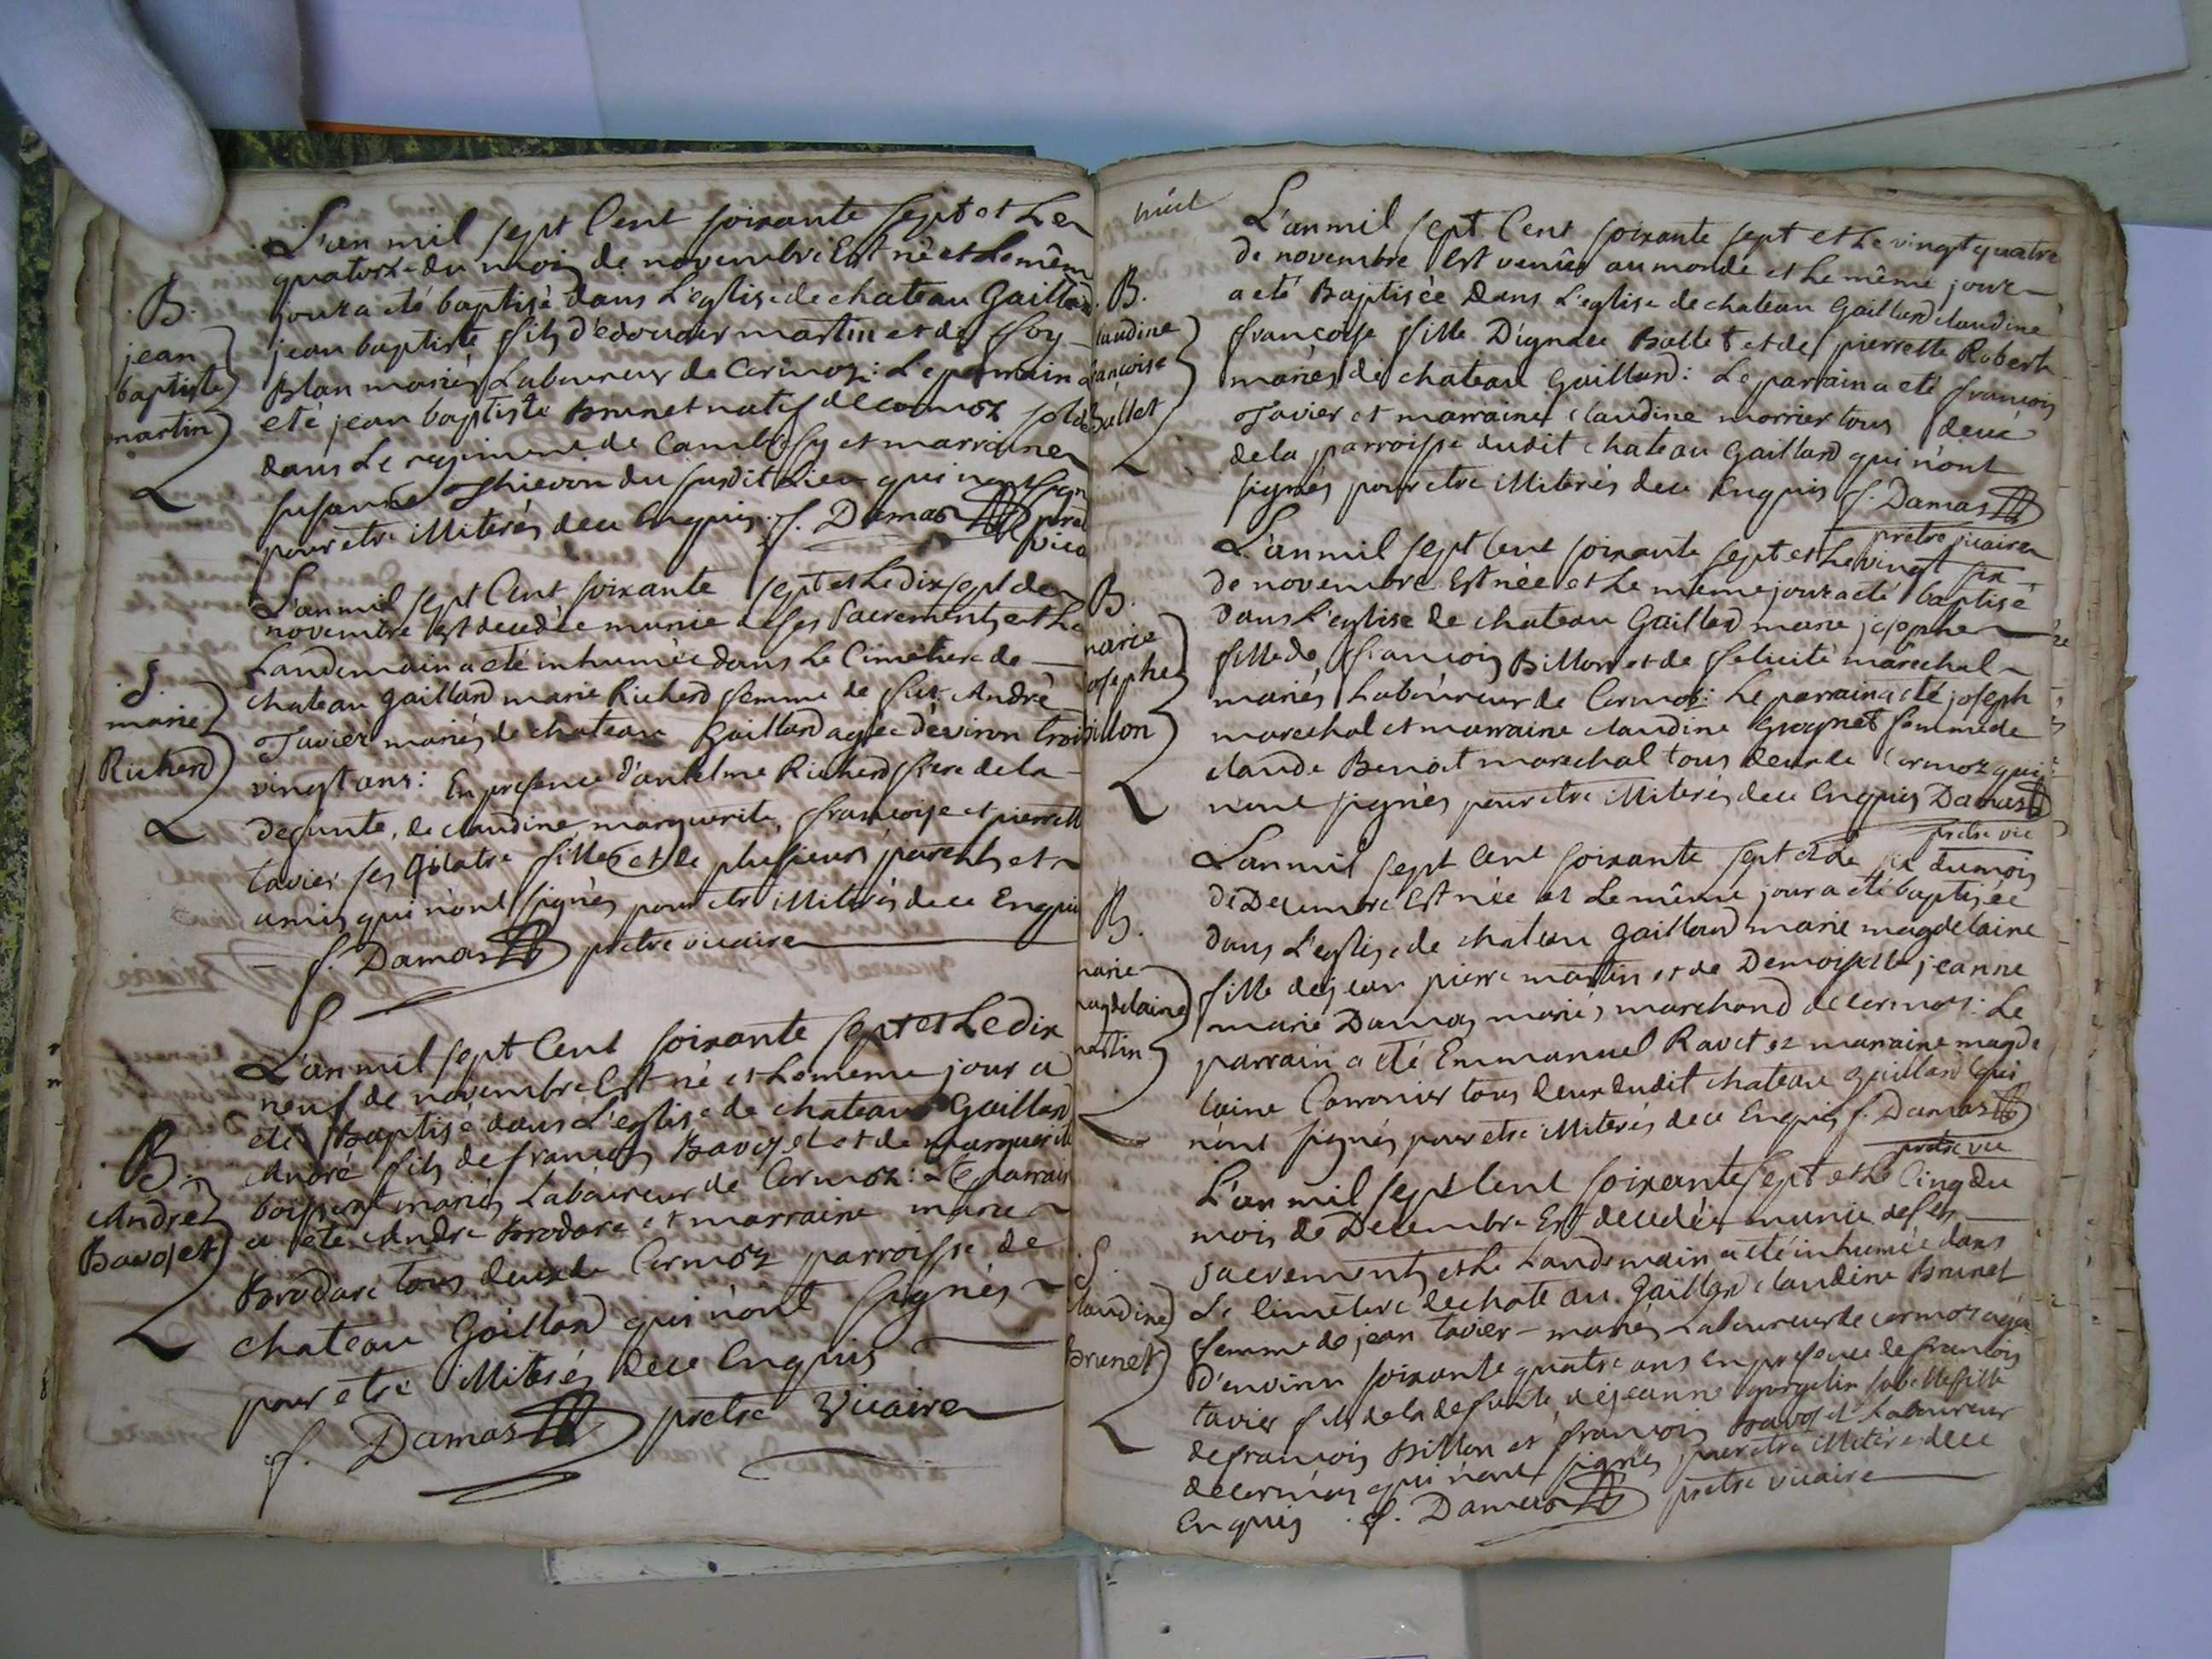 L'an mil sept Cent soixante sept et Le
quatorze du mois de novembre Est né et Le mêm
jour a été baptisé dans L'eglise de chateau Gaillard
B.
jean
baptiste
martin
jean baptiste fils d'edouard martin et de foy
Blan mariés Laboureur de Cormoz: Le parrain a
eté jean baptiste Brunet natif de cormoz solda
dans Le regiment de Cambresy et marraine
susanne Thievon du susdit Lieu qui nont sign
pour etre illiterés de ce Enquis. f. Damas pret
vica
L'an mil sept Cent soixante sept et Le dix sept de
novembre est decedée munie de ses Sacrements et Le
Landemain a eté inhumée dans Le Cimetiere de
S.
marie
Richerd
chateau Gaillard marie Richerd femme de feu André
Tavier mariés de chateau Gaillard agée d'eviron trois
vingt ans: En presence d'antelme Richerd frere de la
defunte, de claudine, marguerite, françoise et pierrett
tavier ses Quatre filles et de plusieurs parents et
amis qui n'ont signés pour etre illiterés de ce Enquis
f. Damas pretre vicaire
L'an mil sept Cent soixante sept et Le dix
neuf de novembre Est né et Le meme jour a
eté Baptisé dans L'eglise de chateau Gaillard
B.
André
Bavozet
André fils de françois Bavozet et de marguerite
boisserat mariés Laboureur de Cormoz: Le parrain
a eté André Brodare et marraine marie
Brodare tous deux de Cormoz parroisse de
chateau Gaillard qui n'ont signés
pour etre illiterés de ce Enquis
f. Damas pretre Vicaire
huit
L'an mil sept Cent soixante sept et Le vingt quatre
de novembre Est venüe au monde et Le même jour
a eté Baptisée Dans L'eglise de chateau Gaillard claudine
B.
laudine
rançoise
Ballet
françoise fille D'ignace Ballet et de pierrette Robert
mariés de chateau Gaillard: Le parrain a eté françois
Tavier et marraine claudine morrier tous deux
de la parroisse dudit chateau Gaillard qui n'ont
signés pour etre illiterés de ce Enquis f. Damas
pretre vicaire
L'an mil sept Cent soixante sept et Le vingt six
de novembre Est née et Le même jour a eté baptisé
dans L'eglise de chateau Gaillard marie josephe
B.
marie
josephe
billon
fille de françois Billon et de felicité maréchal
mariés Laboureur de Cormoz: Le parrain a eté joseph
marechal et marraine claudine femme de
claude Benoit marechal tous deux de Cormoz qui
n'ont signés pour etre illiterés de ce Enquis Damas
pretre vic
L'an mil sept Cent soixante sept et Le six du mois
de Decembre Est née et Le même jour a eté baptisée
dans L'eglise de chateau gaillard marie magdelaine
B.
marie
magdelaine
martin
fille de jean pierre martin et de Demoiselle jeanne
marie Damas mariés marchand de cormoz: Le
parrain a eté Emmanuel Ravet et marraine magde
laine Carronier tous deux dudit chateau gaillard qui
n'ont signés pour etre illiterés de ce Enquis f. Damas
pretre vic
L'an mil sept Cent soixante sept et Le Cinq du
mois de Decembre Est decedée munie de ses
sacrements et Le Landemain a eté inhumée dans
S.
laudine
Brunet
Le Cimetiere de chateau Gaillard claudine Brunet
femme de jean tavier mariés Laboureur de cormoz agée
d'environ soixante quatre ans En presence de françois
tavier fils de la defunte de jeanne sa belle fille
de françois Billon et françois Bavozet Laboureur
de cormoz qui n'ont signés pour etre illiterés de ce
Enquis. f. Damas pretre vicaire